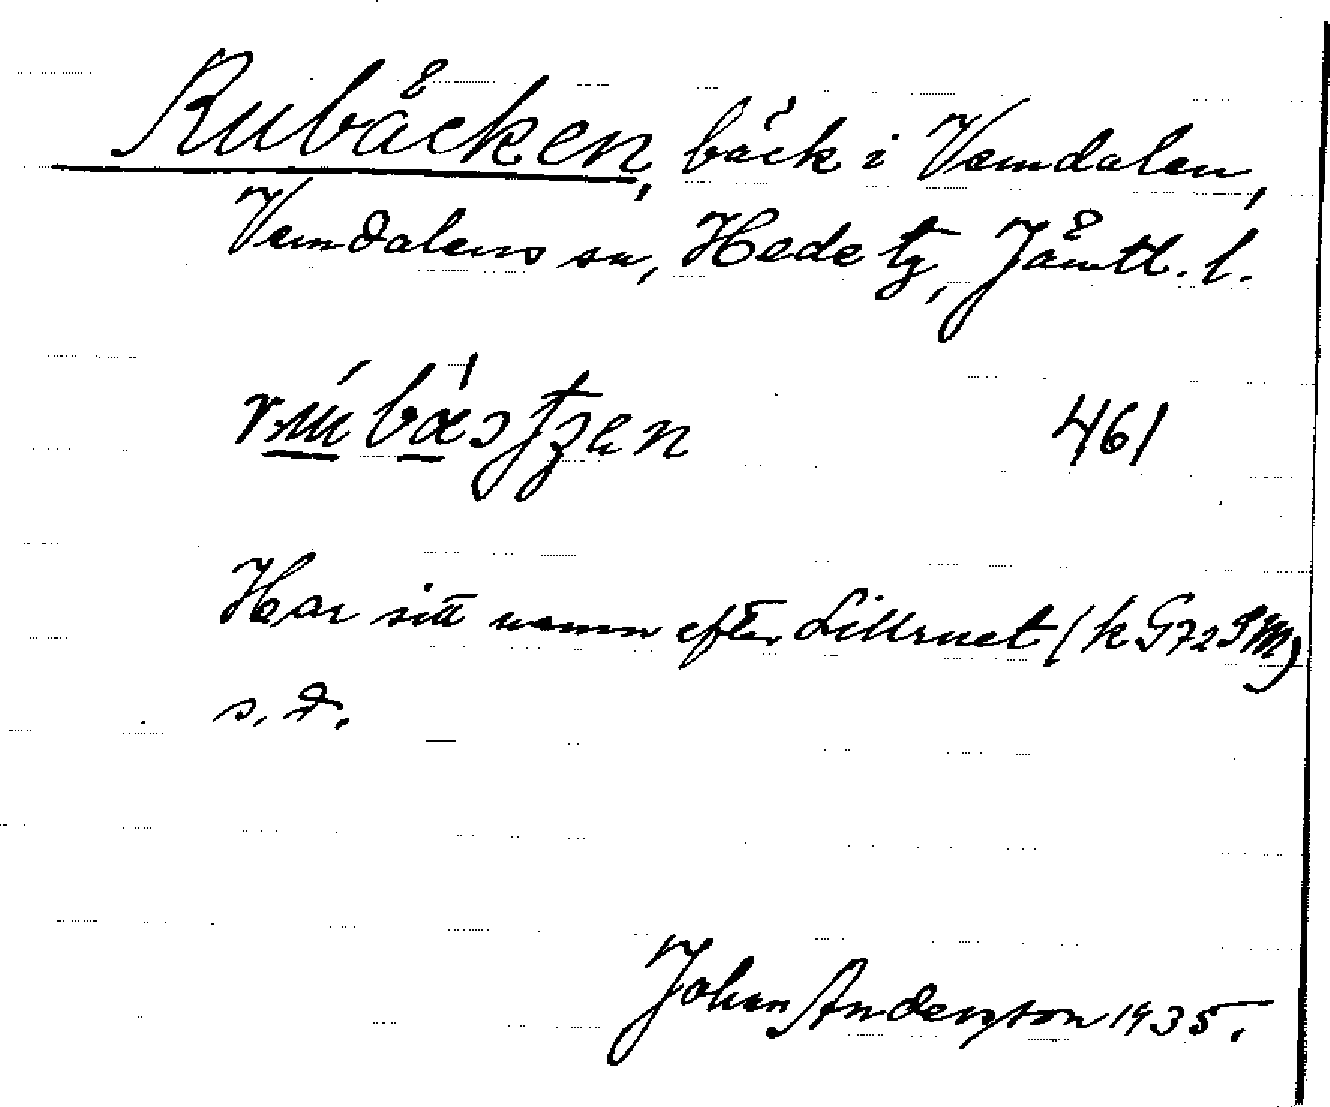 Rubäcken, bäck i Vemdalen,
Vemdalens sn, Hede tg, Jämtl. l.
461
Har sitt namn efter Lillruet (k G72SM)
s. d.
Johan Anderzson 1935.